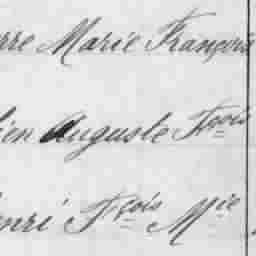 rre Marie François
ien Auguste Fçois
enri Fçois Mie